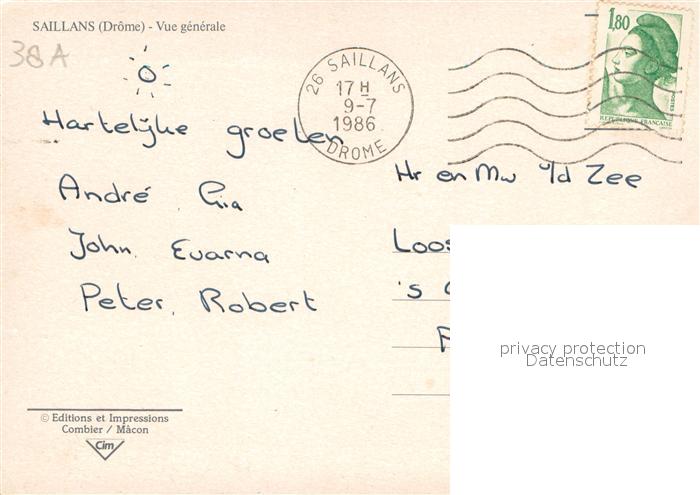 SAILLANS (Drôme) - Vue générale
38A
26 SAILLANS
17 H
9-7
1986
DROME
1,80
POSTES
REPUBLIQUE FRANÇAISE
Hartelijke groeten
André Ria
John. Evarna
Peter, Robert
Hr en Mw v/d Zee
Loos
's
privacy protection
Datenschutz
© Editions et Impressions
Combier / Mâcon
Cim